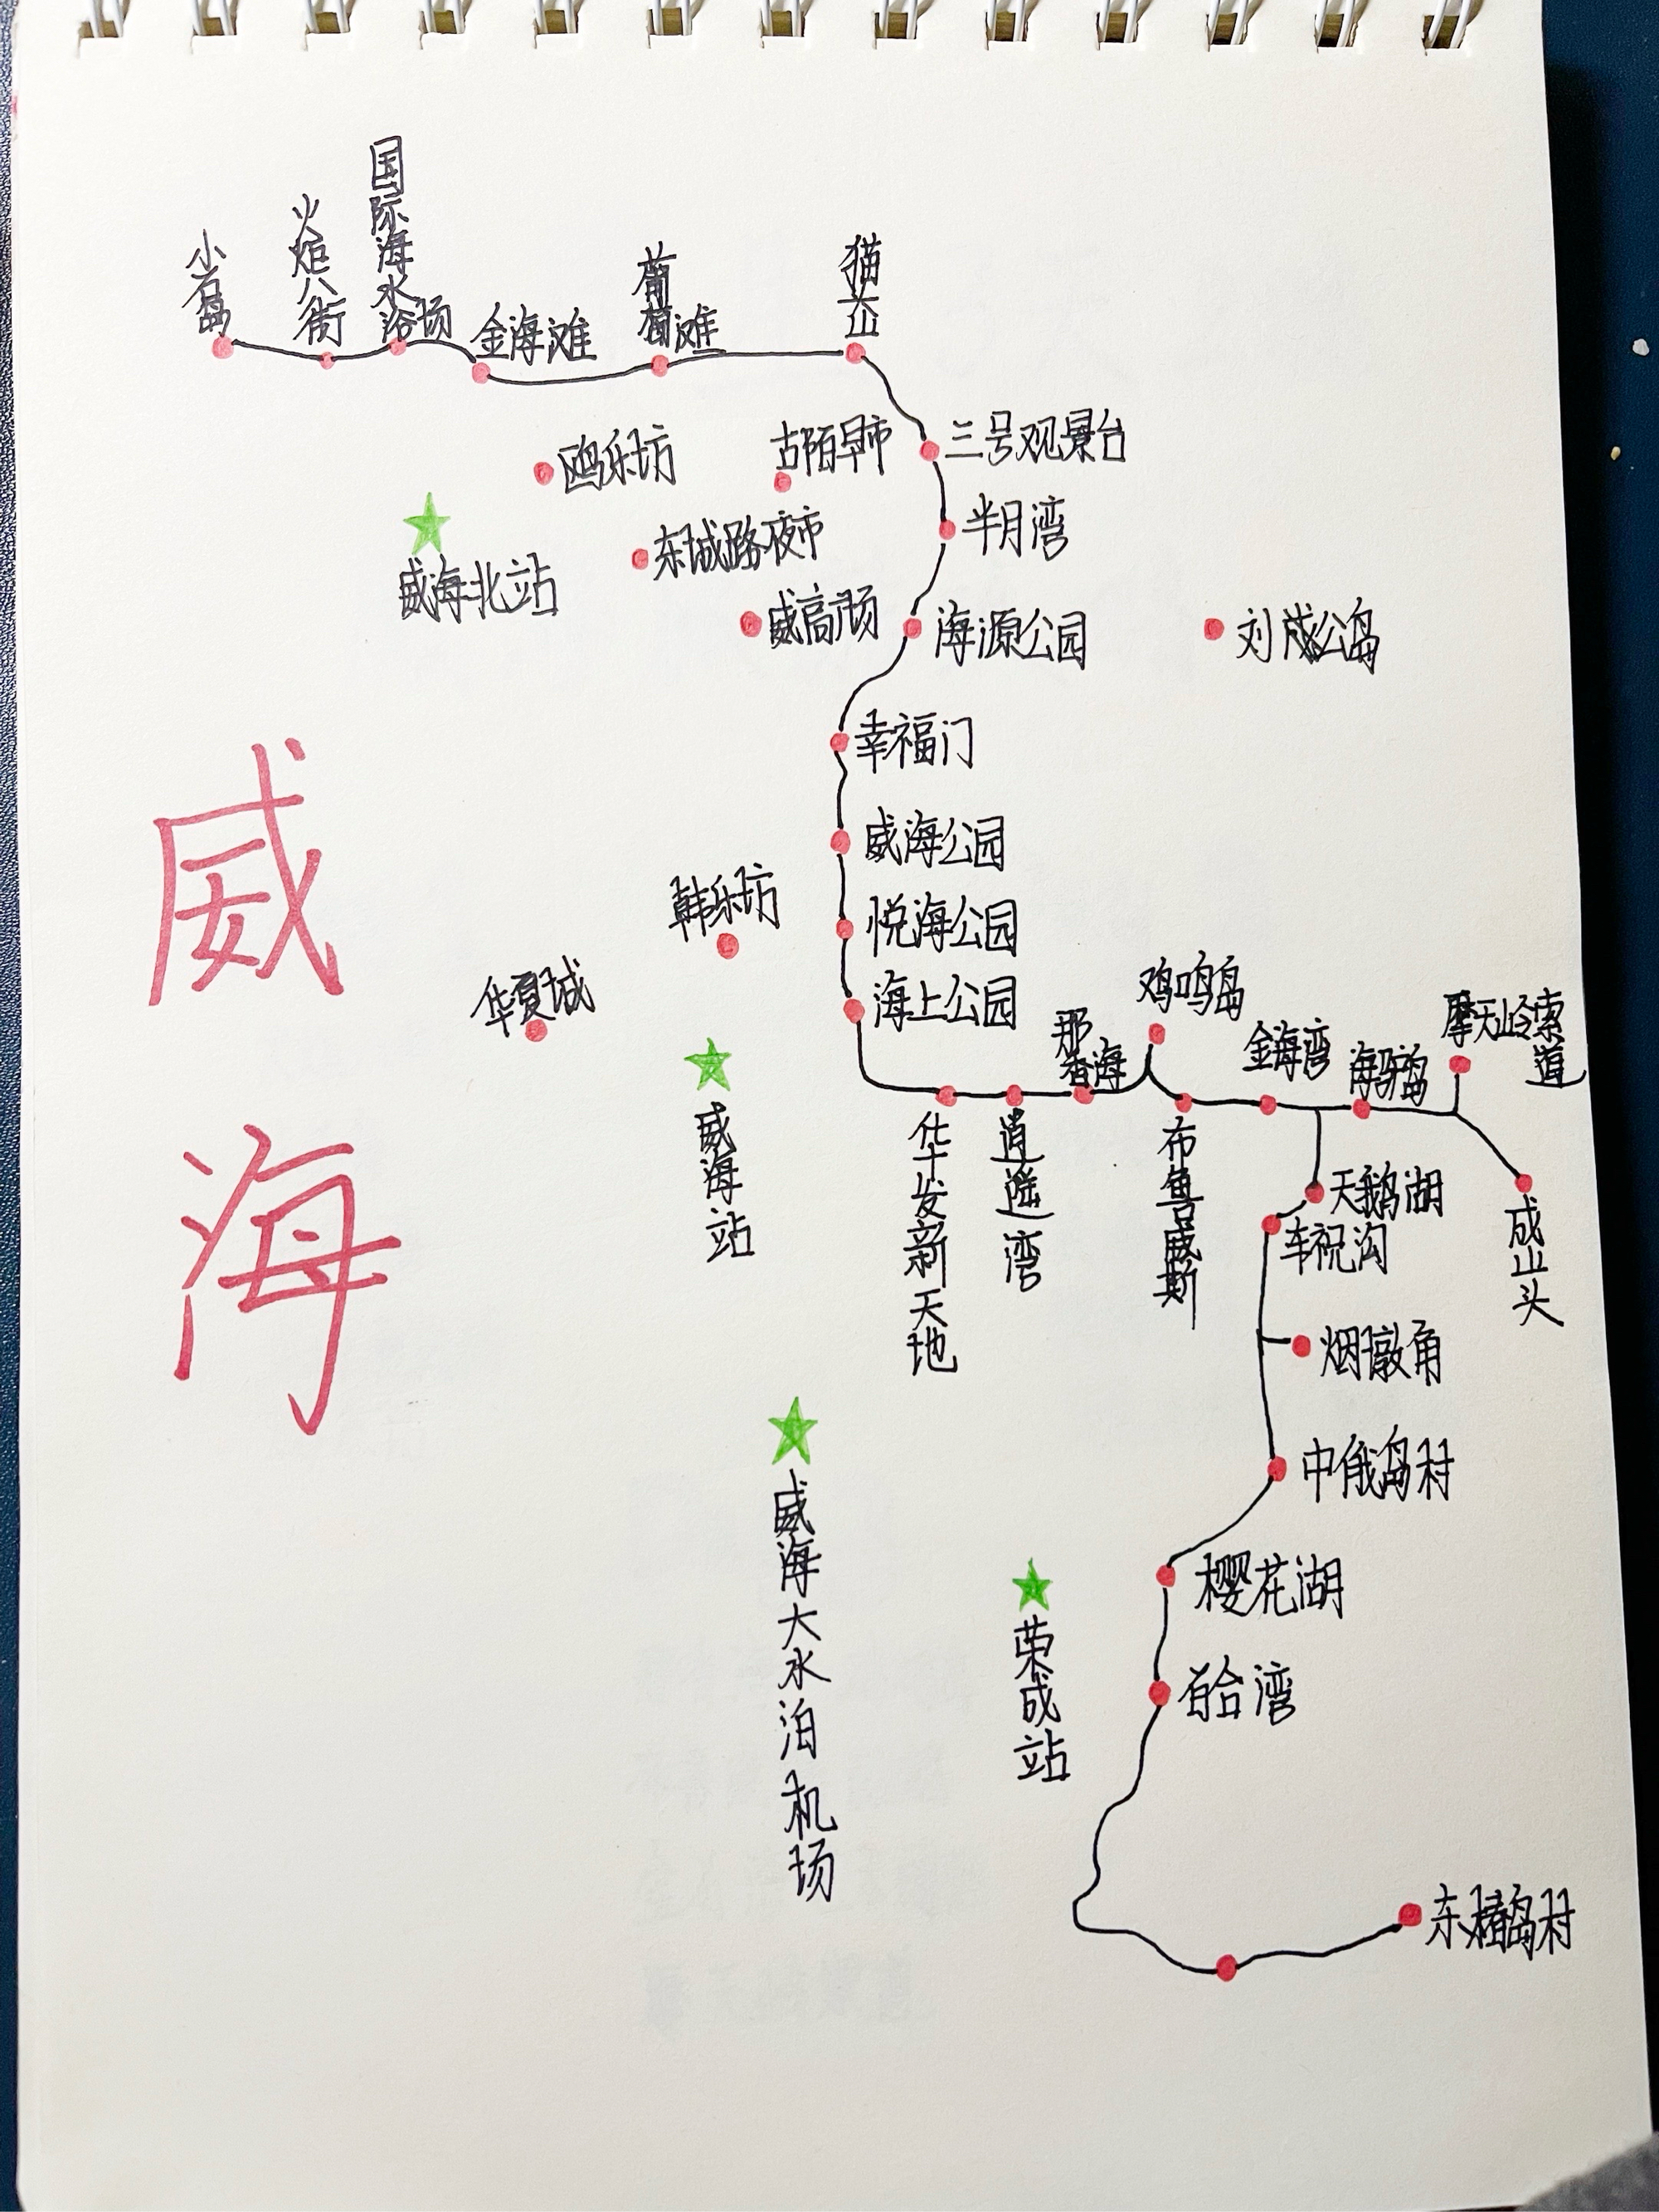 国际海水浴场
火炬八街
小石岛
猫头山
葡萄滩
金海滩
三号观景台
古陌早市
鸥乐坊
半月湾
东城路夜市
威海北站
威高广场
海源公园
刘公岛
幸福门
威海
威海公园
韩乐坊
悦海公园
华夏城
海上公园
鸡鸣岛
那香海
金海湾
海驴岛
摩天岭索道
威海站
华发新天地
逍遥湾
布鲁威斯
天鹅湖
车祝沟
成山头
烟墩角
中俄岛村
威海大水泊机场
樱花湖
荣成站
东楮岛村